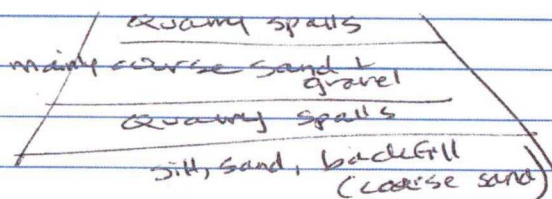 Quarry spalls
mainly course sand +
gravel
Quarry spalls
silt, sand, backfill
(coarse sand)